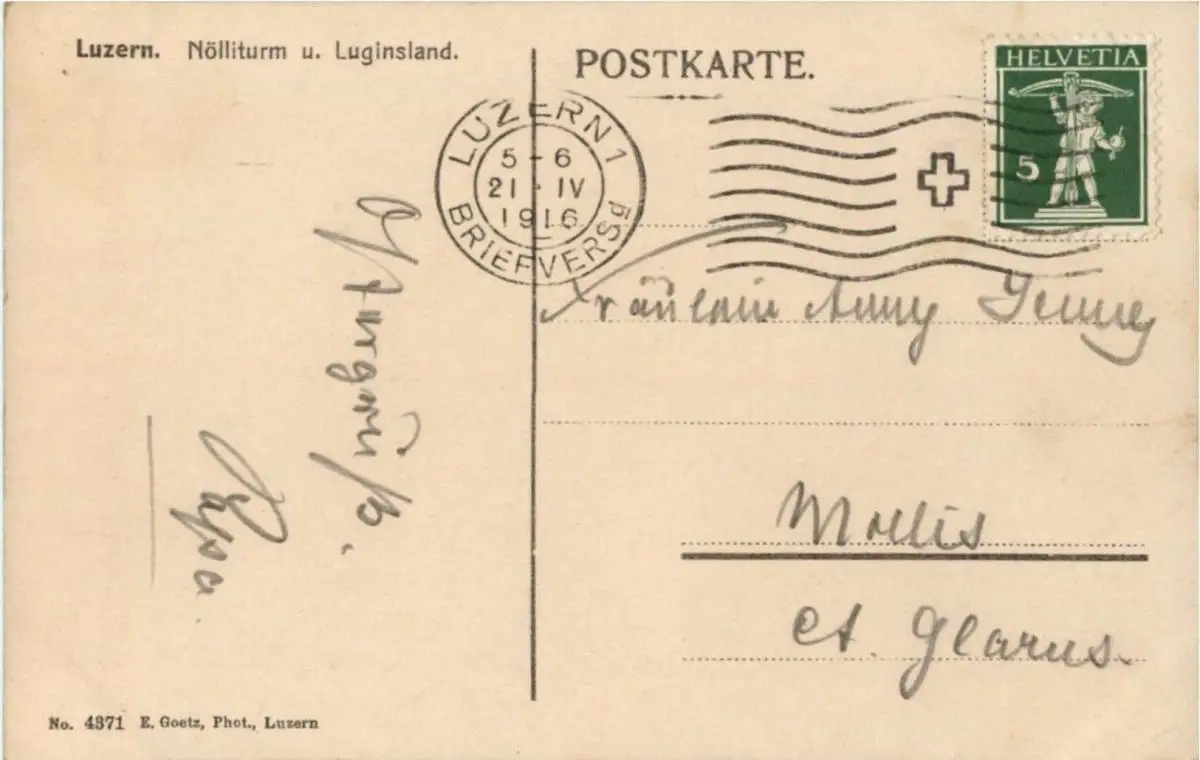 Luzern. Nölliturm u. Luginsland.
POSTKARTE.
HELVETIA
5
LUZERN 1
5-6
21·IV
1916
BRIEFVERSd
Fräulein Anny Jenny
Mollis
Ct. Glarus.
No. 4371 E. Goetz, Phot., Luzern